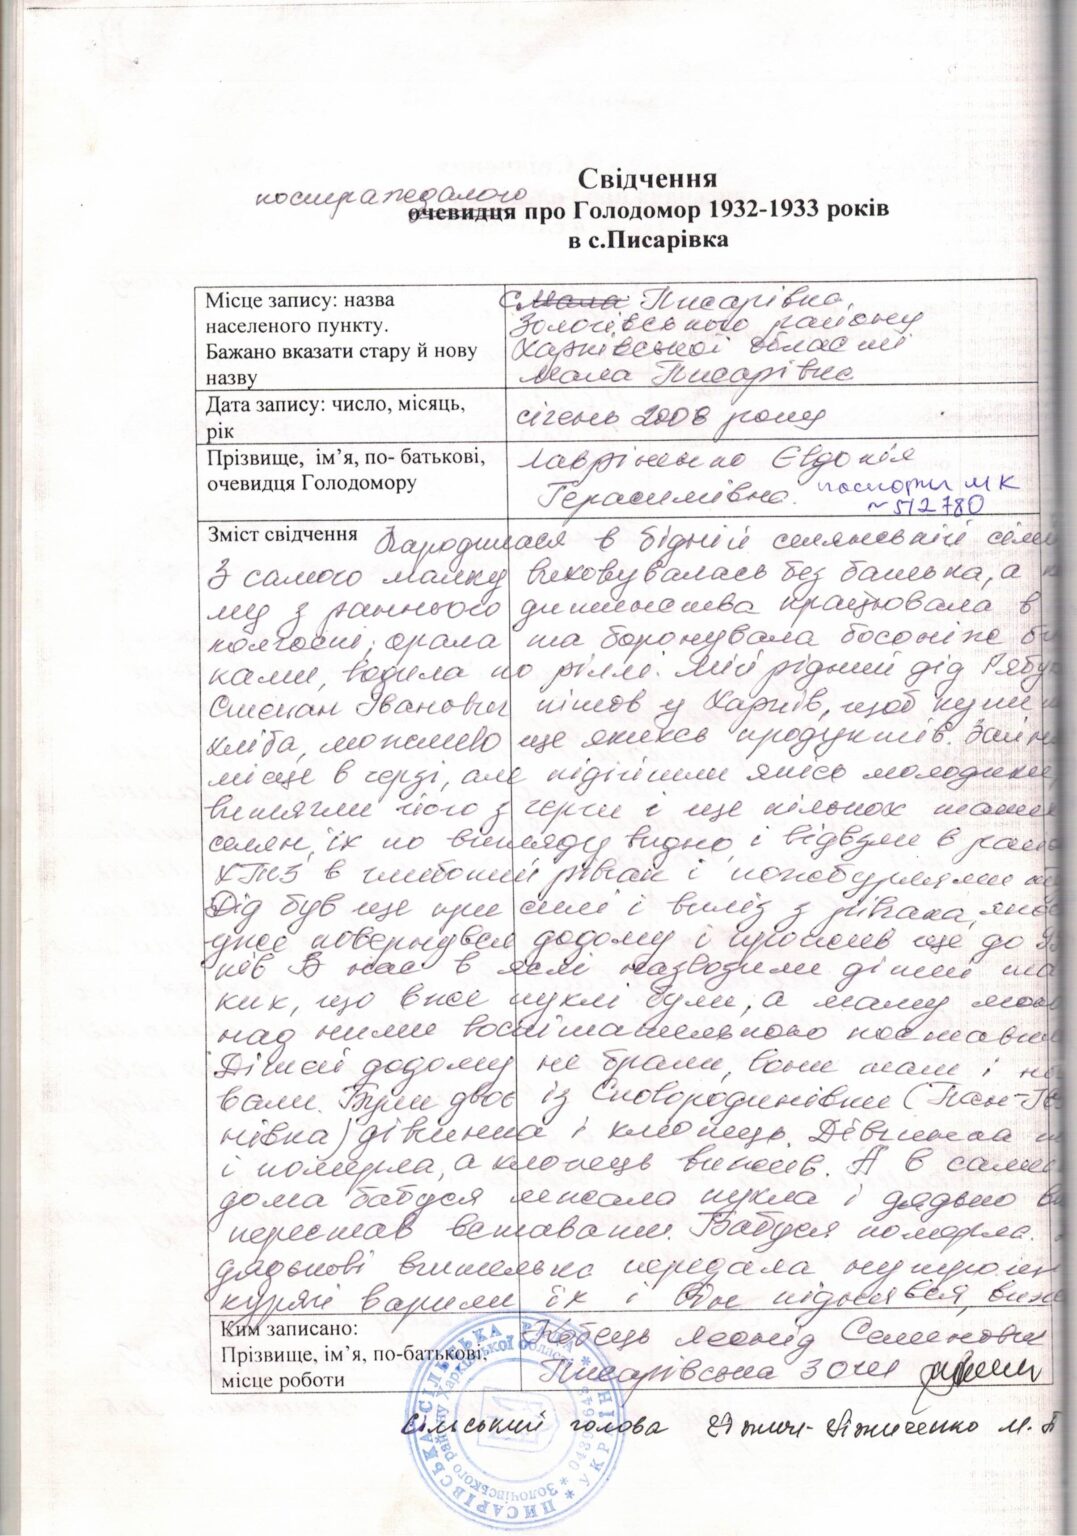 Свідчення
постраждалого
очевидця про Голодомор 1932-1933 років
в с.Писарівка
Місце запису: назва населеного пункту. Бажано вказати стару й нову назву
с Мала Писарівка,
Золочівського району
Харківської області
Мала Писарівка
Дата запису: число, місяць, рік
січень 2008 року
Прізвище, ім’я, по- батькові, очевидця Голодомору
Лавріненко Євдокія
Герасимівна. паспорт МК
№ 512780
Зміст свідчення Народилася в бідній селянській
З самого малку виховувалась без батька, а
му з раннього дитинства працювала в
колгоспі, орала та боронувала босоніж
ками, водила по ріллі. Мій рідний дід
Степан Іванович пішов у Харків, щоб
хліба, можливо ще якихсь продуктів.
місце в черзі, але підійшли якісь молодики
витягли його з черги і ще кількох
селян, їх по вигляду видно, і відвезли в
ХТЗ в глибокий рівчак і
Дід був ще при силі і виліз з рівчака,
повернувся додому і прожив ще до
ків В нас в яслі назводили дітей
ких, що вже пухлі були, а маму
над ними
Дітей додому не брали, вони там і
вали. Були двоє із Сковородинівки (Пан-
нівка) дівчинка і хлопець. Дівчинка
і померла, а хлопець вижив. А в
дома бабуся лежала пухла і дядько
перестав вставати. Бабуся померла.
дядькові вчителька передала
курячі варили їх і він піднявся,
Ким записано: Прізвище, ім’я, по-батькові, місце роботи
Леонід Семенович
Писарівська ЗОШ
Сільський голова М.
ПИСАРІВСЬКА СІЛЬСЬКА РАДА * УКРАЇНИ *
Золочівського району Харківської області